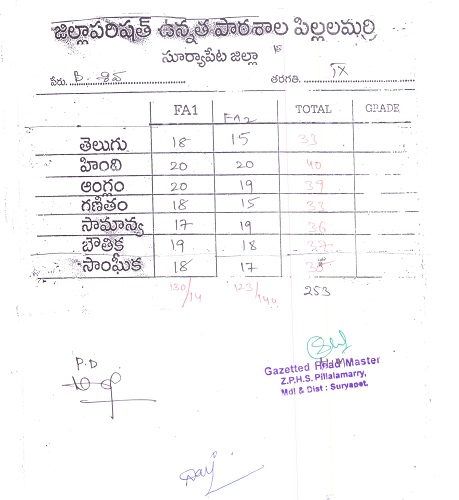 జిల్లాపరిషత్ ఉన్నత పాఠశాల పిల్లలమర్రి
సూర్యాపేట జిల్లా
పేరు. B. శివ తరగతి. IX
FA1 FA2 TOTAL GRADE
తెలుగు 18 15 33
హింది 20 20 40
ఆంగ్లం 20 19 39
గణితం 18 15 33
సామాన్య 17 19 36
బౌతిక 19 18 37
సాంఘీక 18 17
130/14 123/140 253
P.D
Gazetted Head Master
Z.P.H.S. Pillalamarry,
Mdl & Dist : Suryapet.